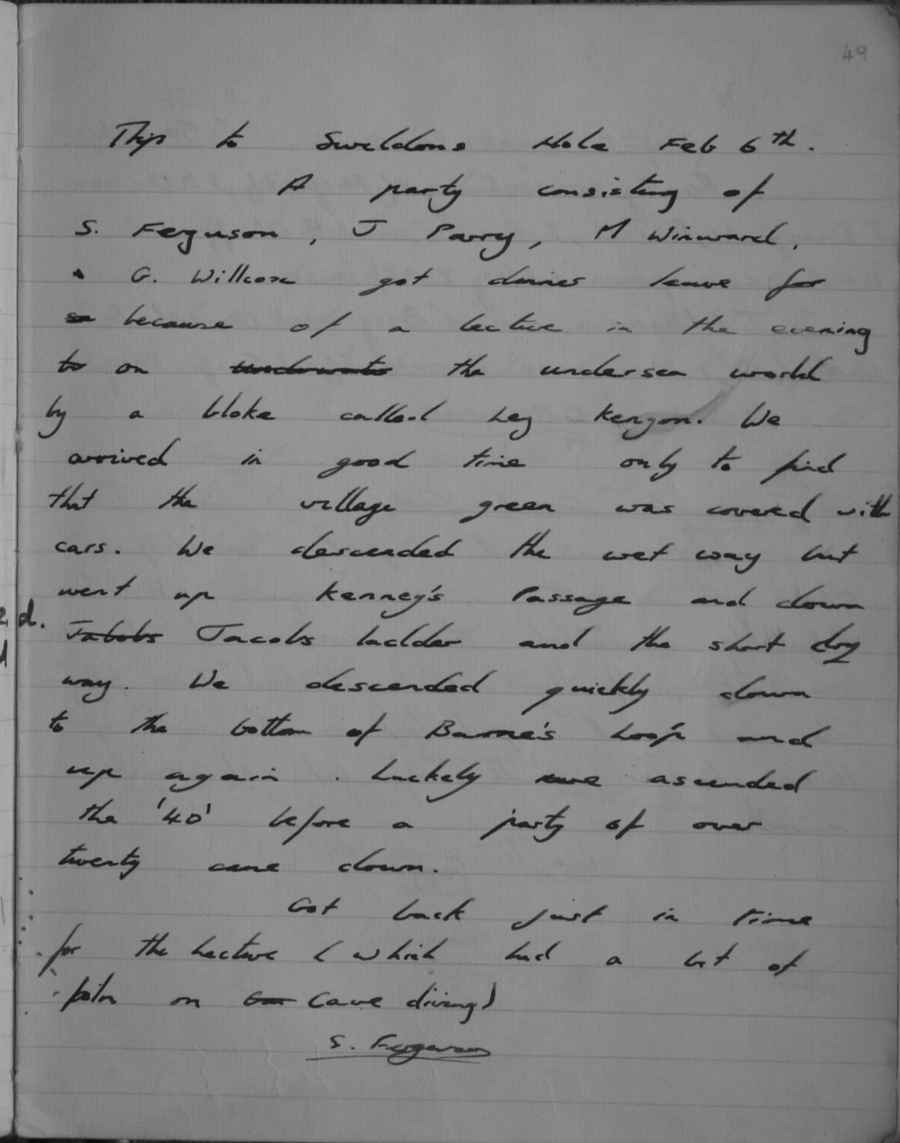 49
Trip to Swildons Hole Feb 6th.
A party consisting of
S. Ferguson, J Parry, M Winward,
G. Willcox got dinner leave for
so because of a lecture in the evening
to on underwater the undersea world
by a bloke called Leg Kenyon. We
arrived in good time only to find
that the village green was covered with
cars. We descended the wet way but
went up Kenney's Passage and down
Jabobs Jacobs ladder and the short dry
way. We descended quickly down
to the bottom of Barne's Loop and
up again. Luckely we ascended
the '40' before a party of over
twenty came down.
Got back just in time
for the Lecture (which had a bit of
film on Cave diving)
S. Ferguson